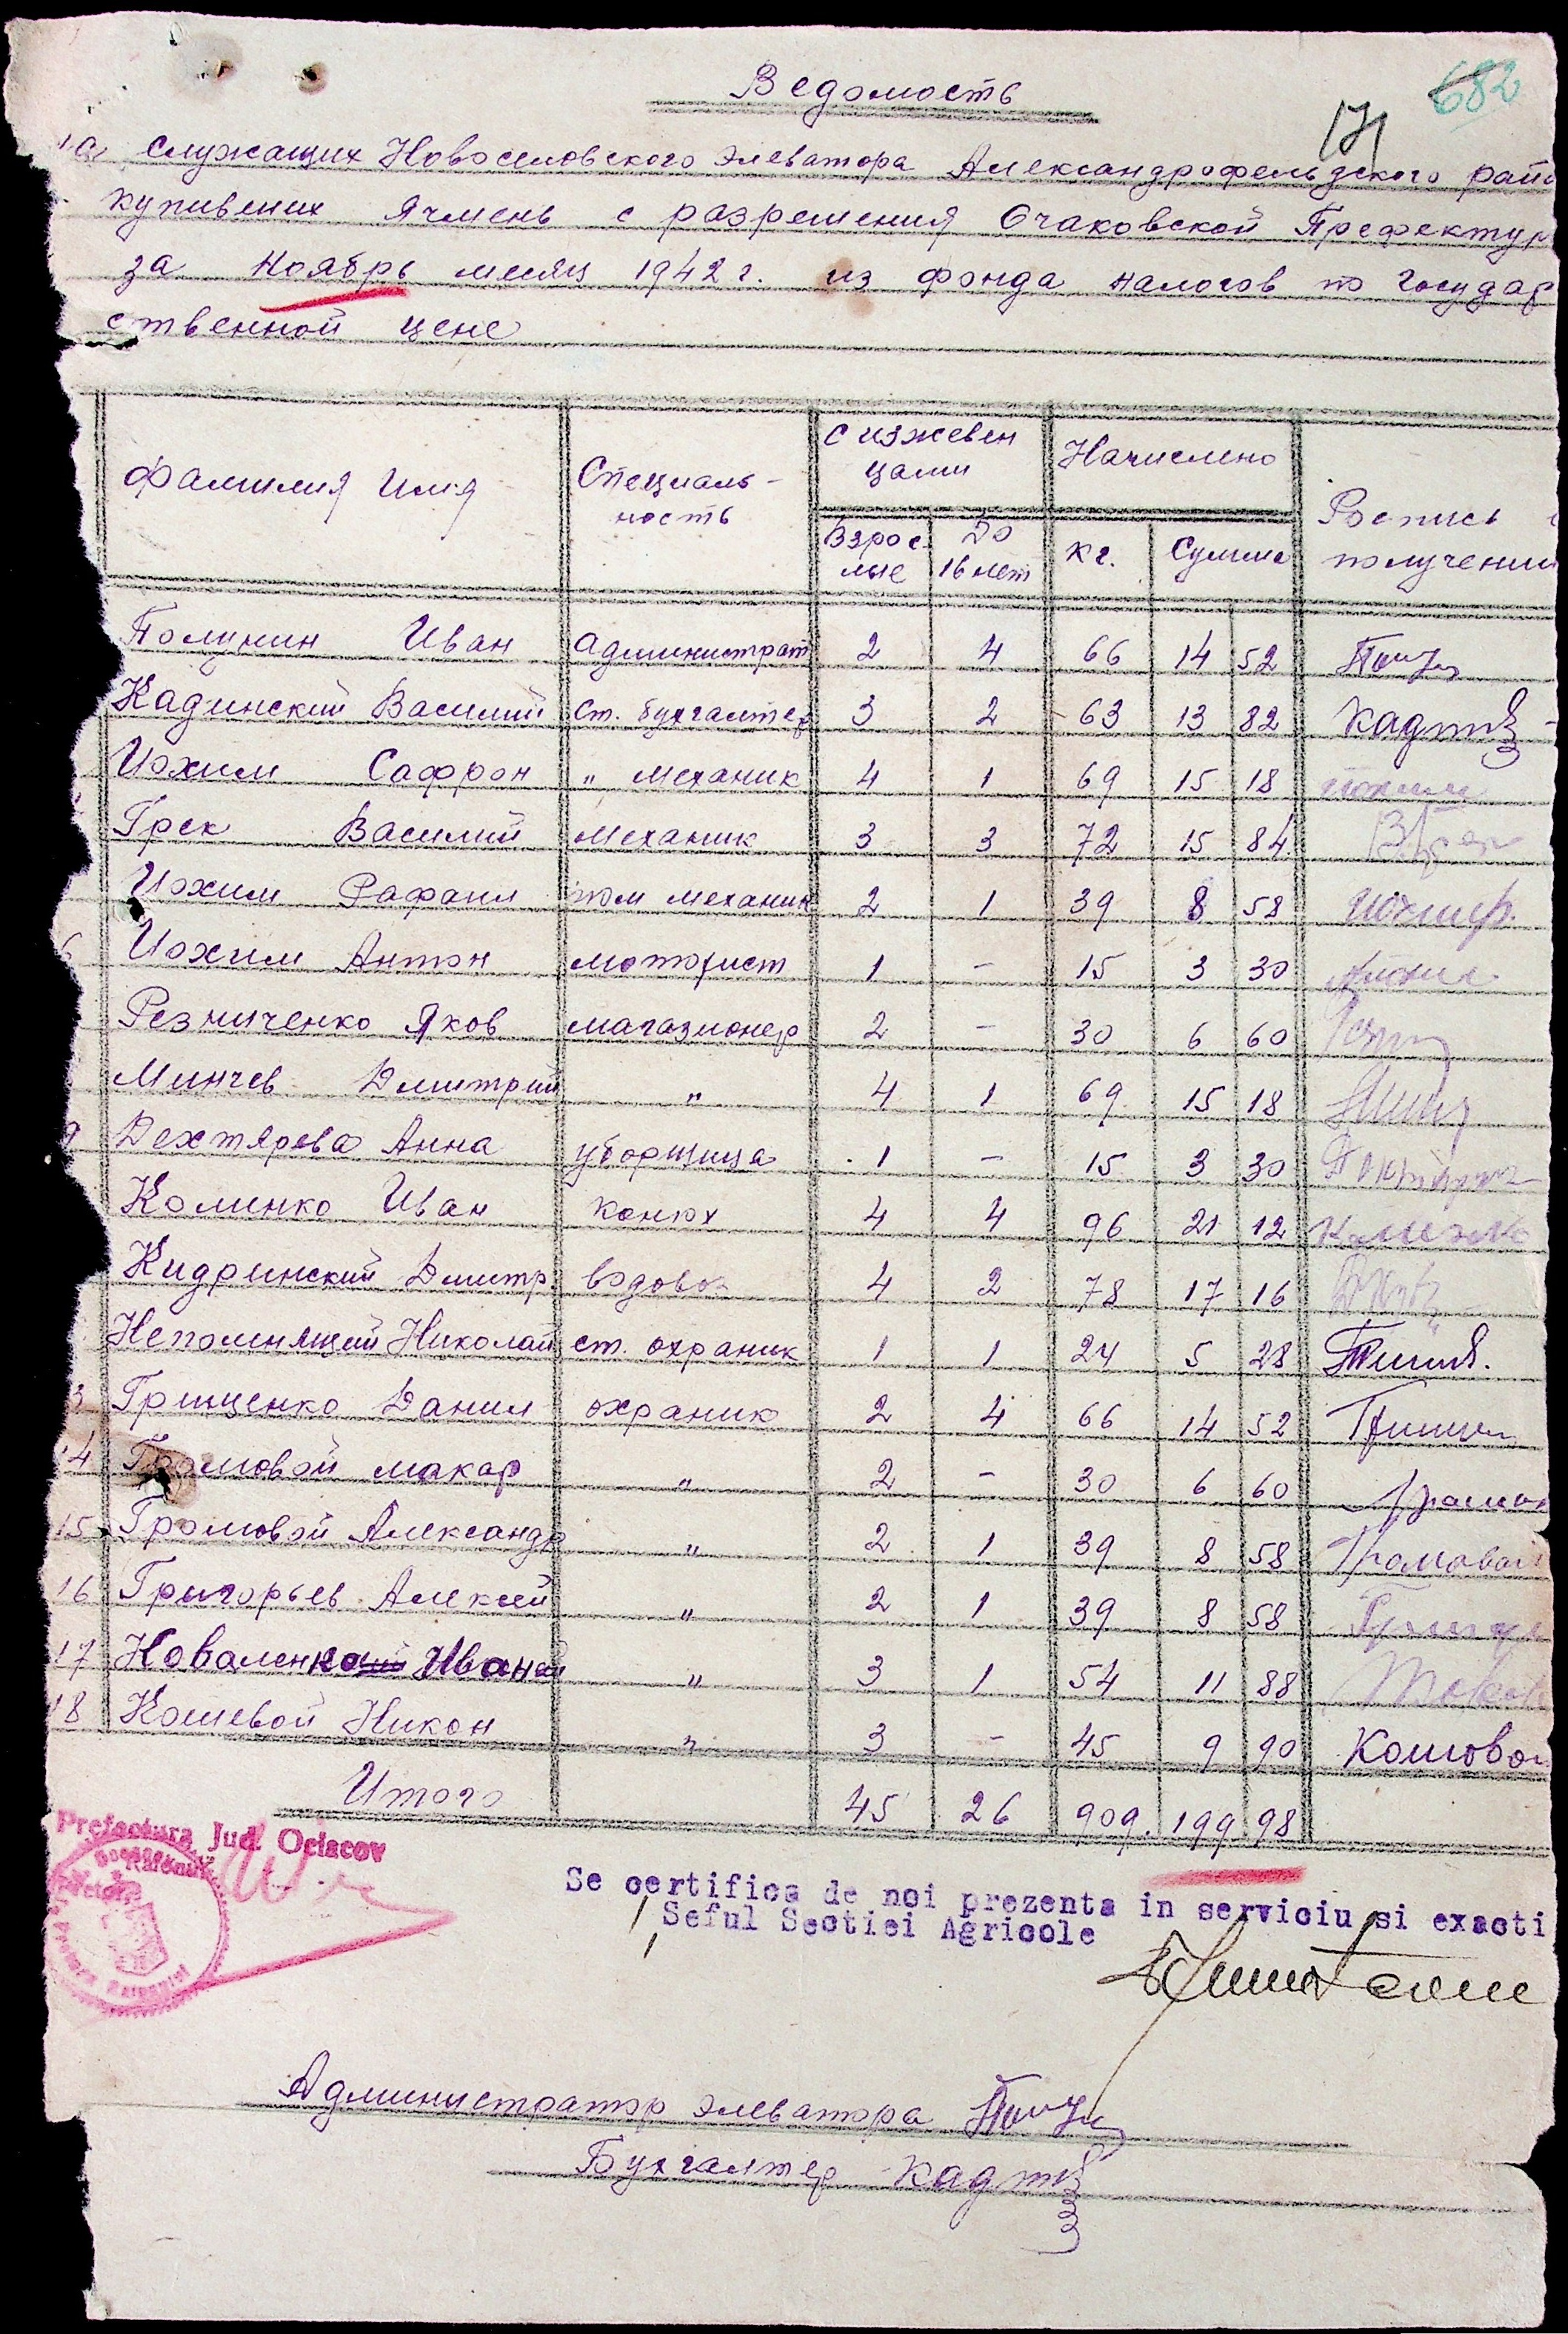 682
Ведомость
171
на служащих Новоселовского элеватора Александрофельдского рай
купивших ячмень с разрешения Очаковской Префектур
за Ноябрь месяц 1942 г. из фонда налогов по государ
ственной цене
Фамилия Имя Специаль- с изжевен Начислено Роспись
ность цами получении
Взрос- До кг. Сумма
лые 16 лет
Полунин Иван Администрат 2 4 66 14 52
Кадинский Василий Ст. бухгалтер 3 2 63 13 82
Иохим Сафрон " механик 4 1 69 15 18 Иохим
Грек Василий механик 3 3 72 15 84
Иохим Рафаил пом механик 2 1 39 8 58
6 Иохим Антон моторист 1 - 15 3 30
Резниченко Яков магазионер 2 - 30 6 60
Минчев Дмитрий " 4 1 69 15 18
9 Дехтярева Анна уборщица 1 - 15 3 30
Колинко Иван конюх 4 4 96 21 12
Кидринский Дмитр. водовоз 4 2 78 17 16
Непомнящий Николай ст. охраник 1 1 24 5 28
3 Грищенко Данил охраник 2 4 66 14 52
14 Громовой Макар " 2 - 30 6 60
15 Громовой Александр " 2 1 39 8 58 Громовой
16 Григорьев Алексей " 2 1 39 8 58
17 Коваленко Иван " 3 1 54 11 88
18 Кошевой Никон " 3 - 45 9 90 Кошовой
Итого 45 26 909. 199 98
Prefectura Jud. Oceacov
Se certifica de noi prezenta in serviciu si exacti
Seful Sectiei Agricole
Администратор элеватора
Бухгалтер